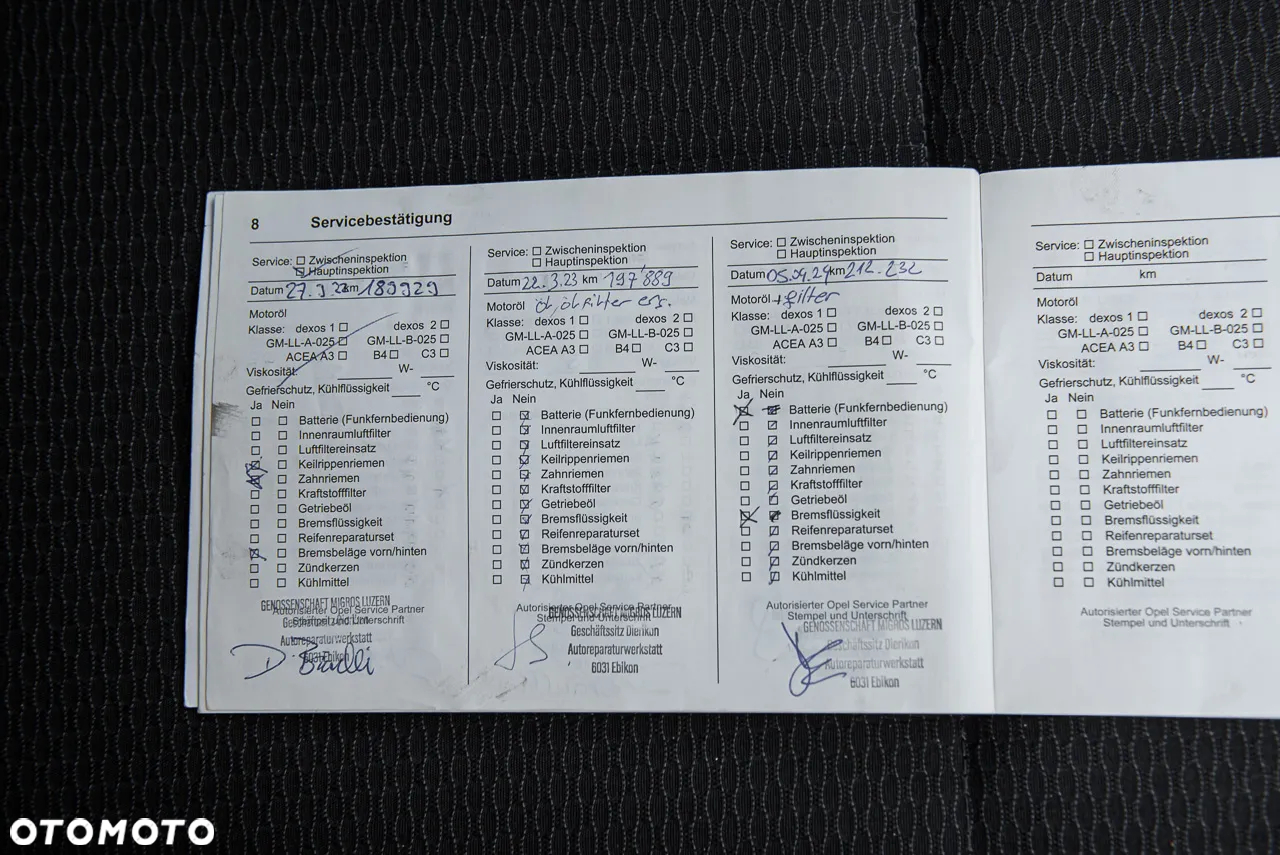 8 Servicebestätigung
Service: Zwischeninspektion
Hauptinspektion
Datum 27.3. km 189929
Motoröl
Klasse: dexos 1 dexos 2
GM-LL-A-025 GM-LL-B-025
ACEA A3 B4 C3
Viskosität: W-
Gefrierschutz, Kühlflüssigkeit °C
Ja Nein
Batterie (Funkfernbedienung)
Innenraumluftfilter
Luftfiltereinsatz
Keilrippenriemen
Zahnriemen
Kraftstofffilter
Getriebeöl
Bremsflüssigkeit
Reifenreparaturset
Bremsbeläge vorn/hinten
Zündkerzen
Kühlmittel
GENOSSENSCHAFT MIGROS LUZERN
Autorisierter Opel Service Partner
Stempel und Unterschrift
Autoreparaturwerkstatt
6031 Ebikon
Service: Zwischeninspektion
Hauptinspektion
Datum 22.3.23 km 197'889
Motoröl öl, ölfilter ers.
Klasse: dexos 1 dexos 2
GM-LL-A-025 GM-LL-B-025
ACEA A3 B4 C3
Viskosität: W-
Gefrierschutz, Kühlflüssigkeit °C
Ja Nein
Batterie (Funkfernbedienung)
Innenraumluftfilter
Luftfiltereinsatz
Keilrippenriemen
Zahnriemen
Kraftstofffilter
Getriebeöl
Bremsflüssigkeit
Reifenreparaturset
Bremsbeläge vorn/hinten
Zündkerzen
Kühlmittel
Autorisierter Opel Service Partner
Stempel und Unterschrift
GENOSSENSCHAFT MIGROS LUZERN
Geschäftssitz Dierikon
Autoreparaturwerkstatt
6031 Ebikon
Service: Zwischeninspektion
Hauptinspektion
Datum 05.04.24 km 212.232
Motoröl + filter
Klasse: dexos 1 dexos 2
GM-LL-A-025 GM-LL-B-025
ACEA A3 B4 C3
Viskosität: W-
Gefrierschutz, Kühlflüssigkeit °C
Ja Nein
Batterie (Funkfernbedienung)
Innenraumluftfilter
Luftfiltereinsatz
Keilrippenriemen
Zahnriemen
Kraftstofffilter
Getriebeöl
Bremsflüssigkeit
Reifenreparaturset
Bremsbeläge vorn/hinten
Zündkerzen
Kühlmittel
Autorisierter Opel Service Partner
Stempel und Unterschrift
GENOSSENSCHAFT MIGROS LUZERN
Geschäftssitz Dierikon
Autoreparaturwerkstatt
6031 Ebikon
Service: Zwischeninspektion
Hauptinspektion
Datum km
Motoröl
Klasse: dexos 1 dexos 2
GM-LL-A-025 GM-LL-B-025
ACEA A3 B4 C3
Viskosität: W-
Gefrierschutz, Kühlflüssigkeit °C
Ja Nein
Batterie (Funkfernbedienung)
Innenraumluftfilter
Luftfiltereinsatz
Keilrippenriemen
Zahnriemen
Kraftstofffilter
Getriebeöl
Bremsflüssigkeit
Reifenreparaturset
Bremsbeläge vorn/hinten
Zündkerzen
Kühlmittel
Autorisierter Opel Service Partner
Stempel und Unterschrift
OTOMOTO